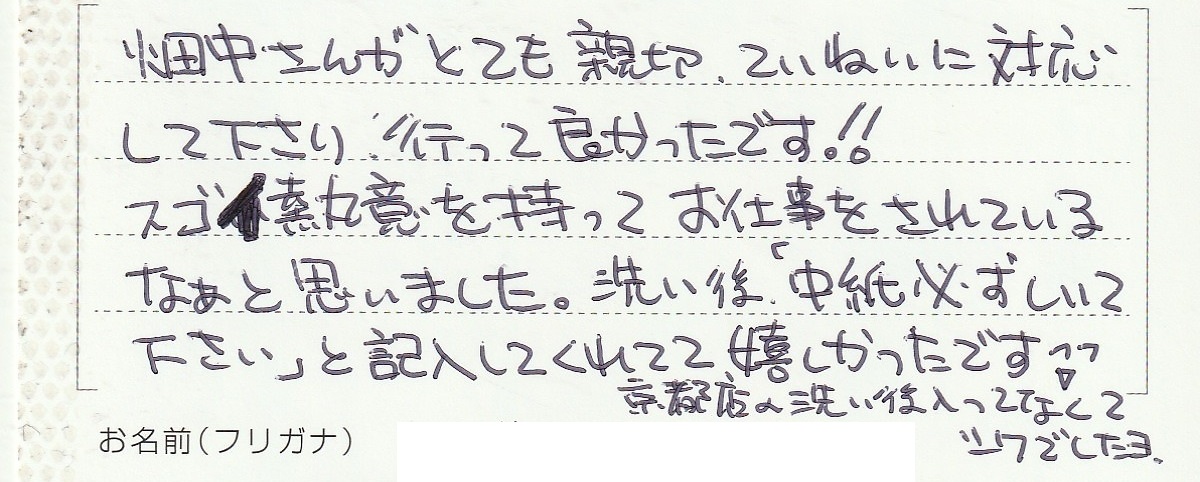 畑中さんがとても親切、ていねいに対応
して下さり、行って良かったです!!
スゴイ熱意を持ってお仕事をされている
なぁと思いました。洗い後、「中紙必ずしいて
下さい」と記入してくれてて嬉しかったです
京都店の洗い後入ってなくて
シワでしたヨ.
お名前(フリガナ)